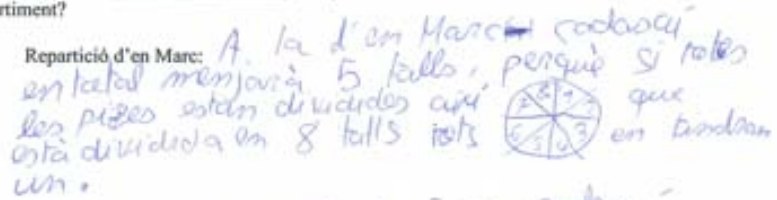 rtiment?
Repartició d'en Marc: A la d'en Marc cadascú
en total menjarià 5 talls, perquè si totes
les pizes estan dividides així 8 1 2 3 4 5 6 7 que
està dividida en 8 talls tots en tendran
un.